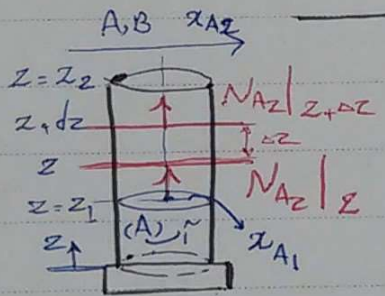 A,B x_A2
z = z_2
N_Az|_z+Δz
z+dz
Δz
z
N_Az|_z
z = z_1
(A)
x_A1
z